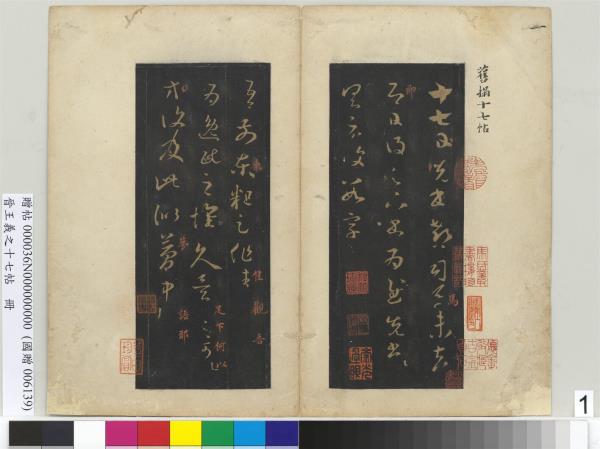 舊搨十七帖
十七日先書郗司馬未去
即日得足下書為慰先書
以具示復數字
吾前東粗足作佳觀吾
為逸民之懷久矣足下何以
方復及此似夢中語耶
贈帖 000036N000000000 (國贈 006139)
晉王羲之十七帖 冊
1